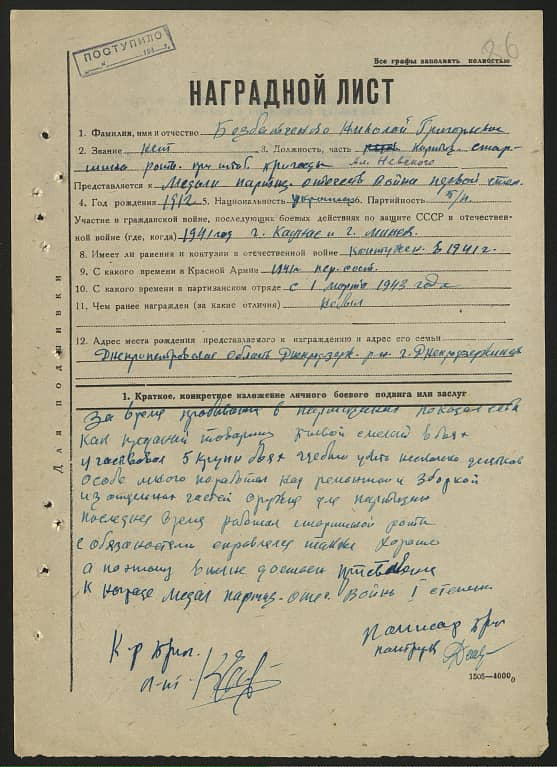 ПОСТУПИЛО
36
Все графы заполнять полностью
НАГРАДНОЙ ЛИСТ
1. Фамилия, имя и отчество Николай Григорьевич
2. Звание 3. Должность, часть стар-
шина роты при штаб. бригады ал. Невского
Представляется к Медали партиз. отечеств война первой степ.
4. Год рождения 1912 5. Национальность украинец 6. Партийность б/п.
Участие в гражданской войне, последующих боевых действиях по защите СССР и отечествен-
ной войне (где, когда) 1941 год г. Каунас и г. Минск.
8. Имеет ли ранения и контузии в отечественной войне Контужен. в 1941 г.
9. С какого времени в Красной Армии 1941 г.
10. С какого времени в партизанском отряде с 1 марта 1943 года
11. Чем ранее награжден (за какие отличия) не был
12. Адрес места рождения представляемого к награждению и адрес его семьи
Днепропетровская область р-н г. Днепродзержинск
Для подшивки
1. Краткое, конкретное изложение личного боевого подвига или заслуг
За время в партизанах показал себя
как преданый товарищ боевой смелой в боях
участвовал 5 крупн боях где было убить несколько десятков
особе много поработал над ремонтом и зборкой
из отдельных частей оружие для партизан
последнее время работал старшиной роты
с обязаностями справлялся также хорошо
а поэтому достоен
к награде Медал партиз. отеч. Войны I степени
К-р бриг.
Комисар бри
политрук
1505—4000